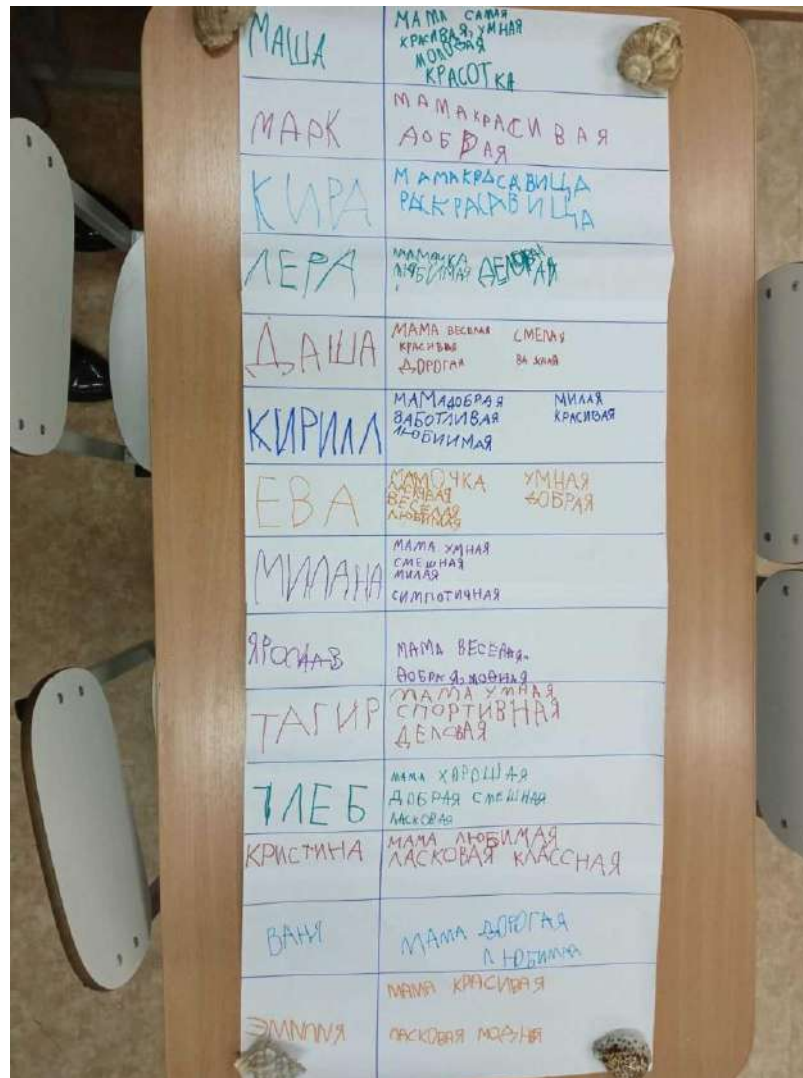 МАША
МАМА САМАЯ
КРАСИВАЯ, УМНАЯ
МОЛОДАЯ
КРАСОТКА
МАРК
МАМАКРАСИВАЯ
ДОБРАЯ
КИРА
МАМАКРАСАВИЦА
РАСКРАСАВИЦА
ЛЕРА
МАМОЧКА
ЛЮБИМАЯ ДЕЛОВАЯ
ДАША
МАМА ВЕСЕЛАЯ СМЕЛАЯ
КРАСИВАЯ
ДОРОГАЯ ВАЖНАЯ
КИРИЛЛ
МАМАДОБРАЯ МИЛАЯ
ЗАБОТЛИВАЯ КРАСИВАЯ
ЛЮБИИМАЯ
ЕВА
МАМОЧКА УМНАЯ
ДОБРАЯ
ВЕСЕЛАЯ
ЛЮБИМАЯ
МИЛАНА
МАМА УМНАЯ
СМЕШНАЯ
МИЛАЯ
СИМПОТИЧНАЯ
ЯРОСЛАВ
МАМА ВЕСЕЛАЯ.
ДОБРАЯ, МОДНАЯ
ТАГИР
МАМА УМНАЯ
СПОРТИВНАЯ
ДЕЛОВАЯ
ГЛЕБ
МАМА ХАРОШАЯ
ДОБРАЯ СМЕШНАЯ
ЛАСКОВАЯ
КРИСТИНА
МАМА ЛЮБИМАЯ
ЛАСКОВАЯ КЛАССНАЯ
ВАНЯ
МАМА ДОРОГАЯ
ЛЮБИМАЯ
ЭМИЛИЯ
МАМА КРАСИВАЯ
ЛАСКОВАЯ